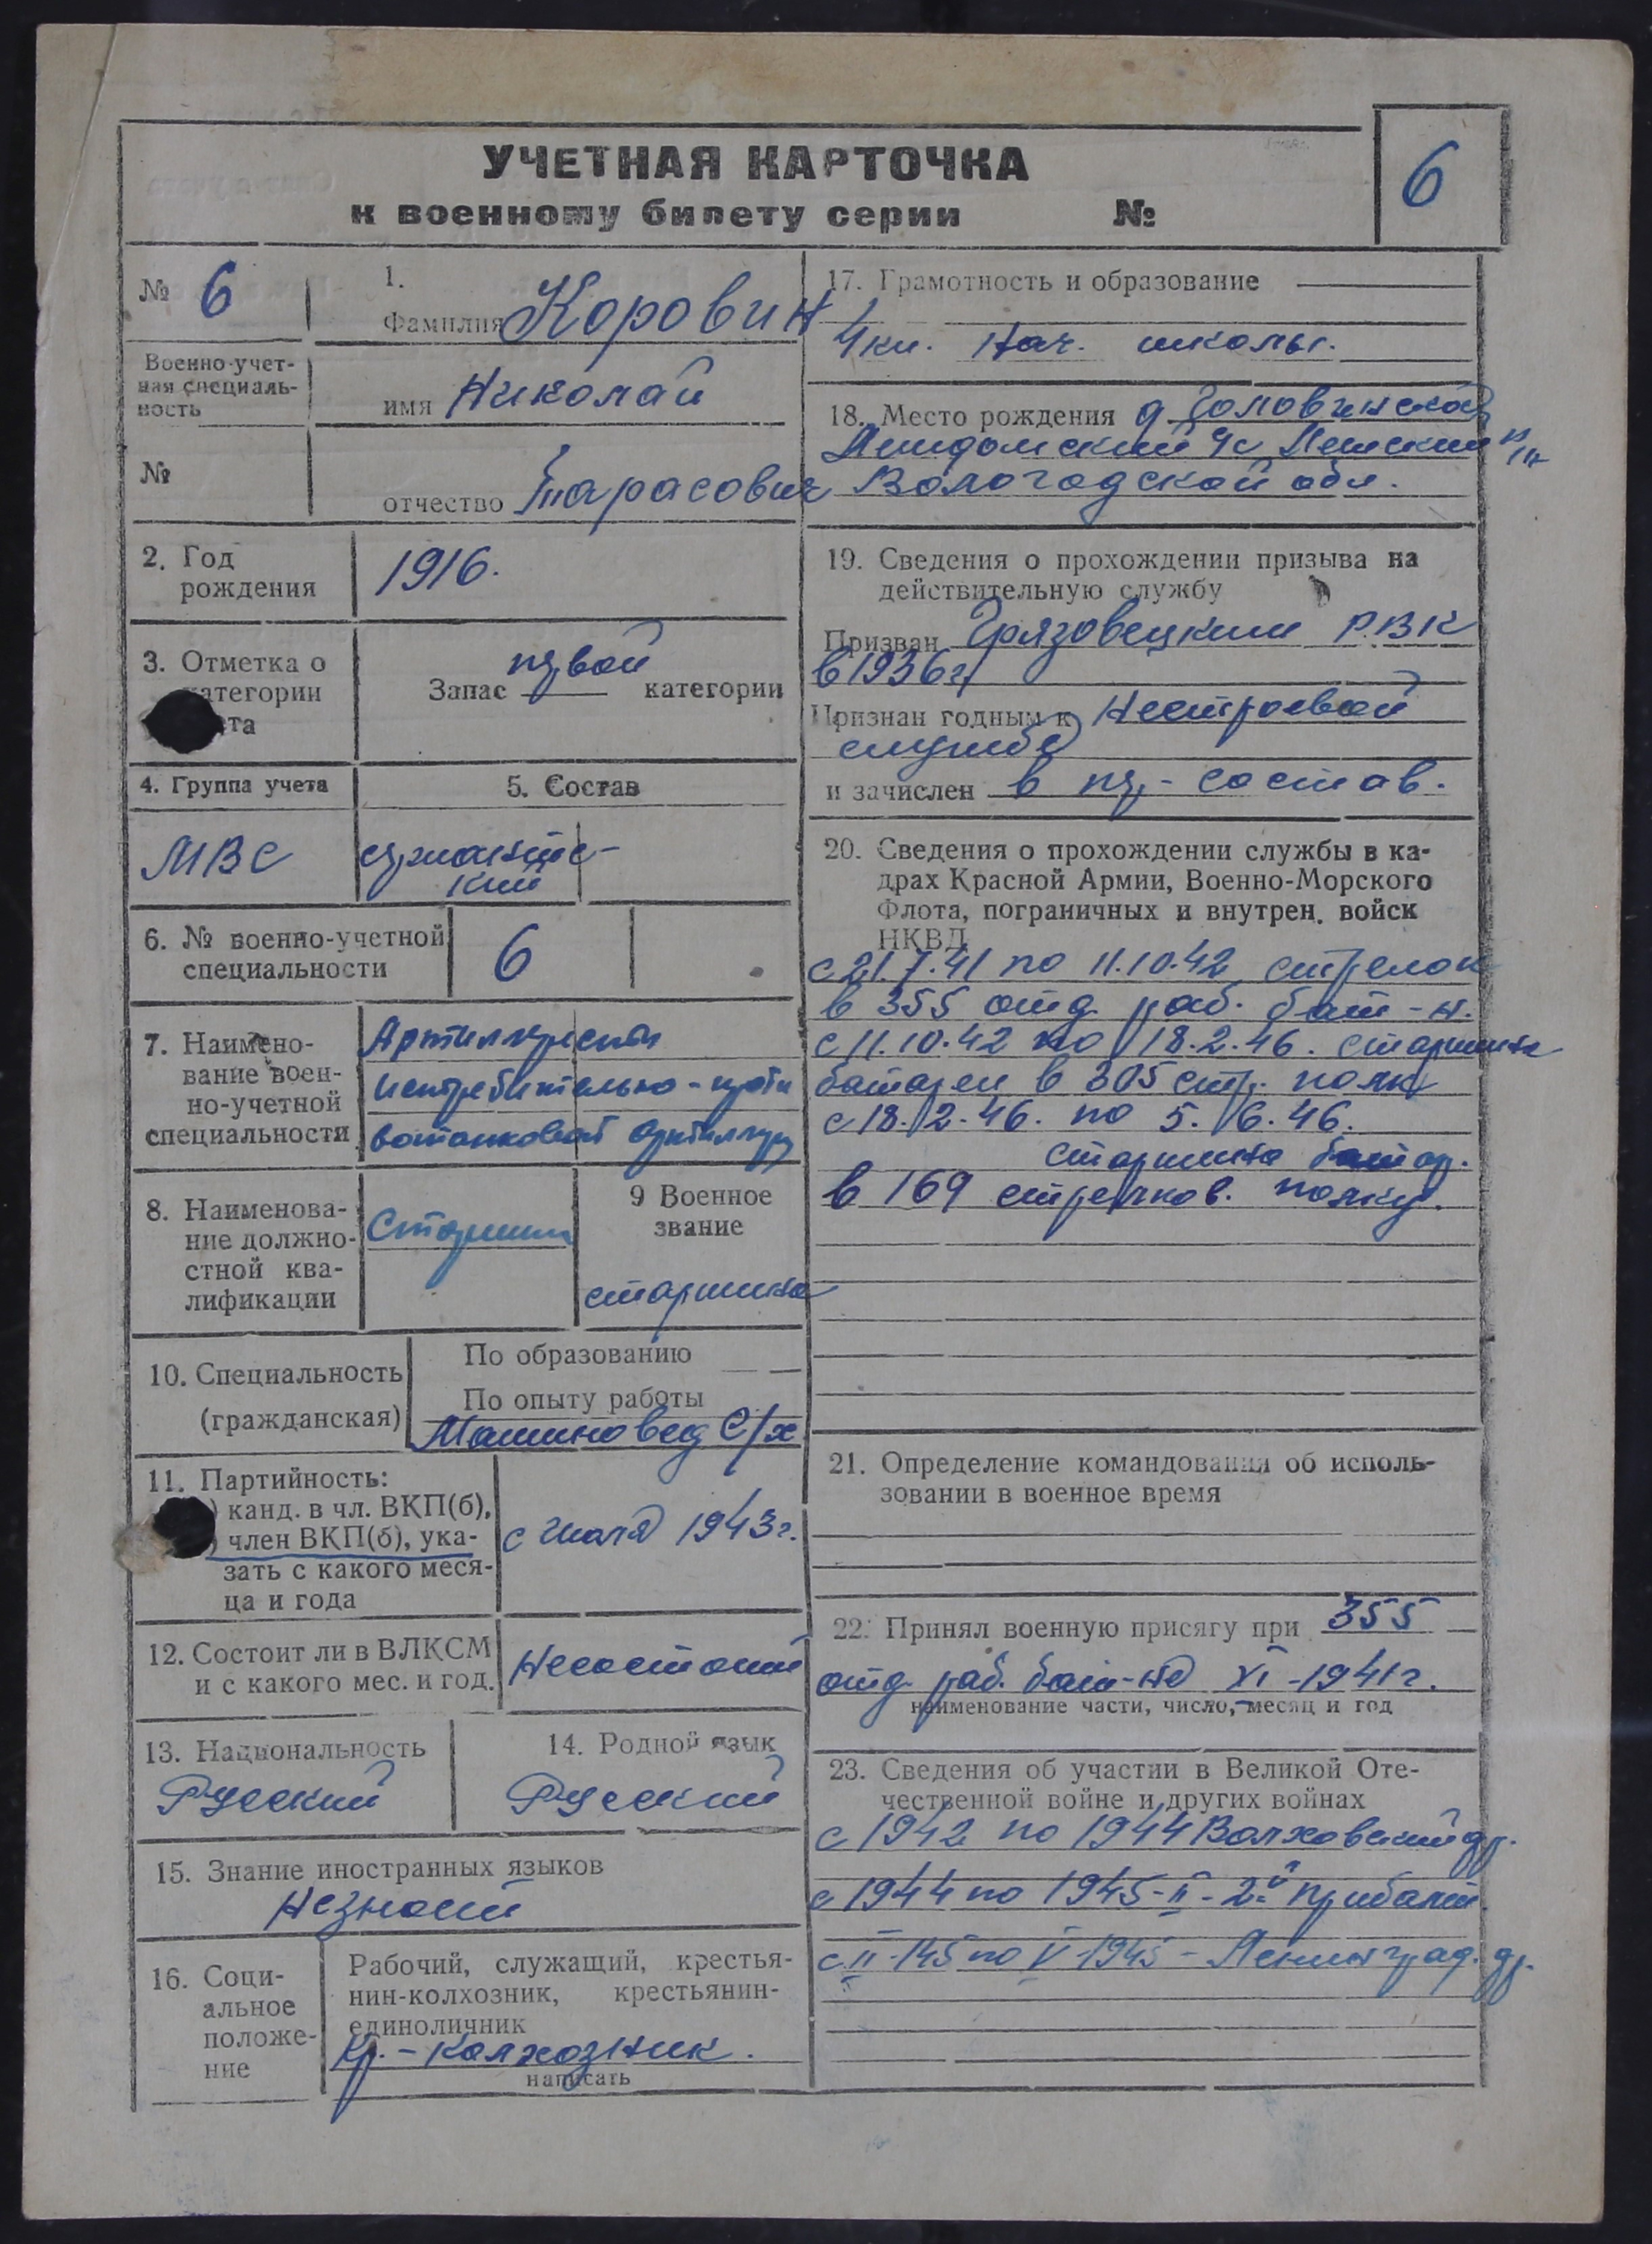 УЧЕТНАЯ КАРТОЧКА
к военному билету серии №
6
№ 6
1.
Фамилия Коровин
Военно-учет-
ная специаль-
ность
имя Николай
№
отчество Тарасович
2. Год
рождения
1916.
3. Отметка о
категории
та
Запас первой категории
4. Группа учета
МВС
5. Состав
сержантс-
кий
6. № военно-учетной
специальности
6
7. Наимено-
вание воен-
но-учетной
специальности
Артиллерская
истребительно-проти
вотанковой артиллер
8. Наименова-
ние должно-
стной ква-
лификации
Старшин
9 Военное
звание
старшина
10. Специальность
(гражданская)
По образованию
По опыту работы
Машиновед С/х
11. Партийность:
) канд. в чл. ВКП(б),
) член ВКП(б), ука-
зать с какого меся-
ца и года
с июля 1943г.
12. Состоит ли в ВЛКСМ
и с какого мес. и год.
Несостоит
13. Национальность
Русский
14. Родной язык
Русский
15. Знание иностранных языков
Незнает
16. Соци-
альное
положе-
ние
Рабочий, служащий, крестья-
нин-колхозник, крестьянин-
единоличник
Кр.-колхозник.
написать
17. Грамотность и образование
4кл. нач. школы.
18. Место рождения д Головинская
с/с
Вологодской обл.
19. Сведения о прохождении призыва на
действительную службу
Призван Грязовецким Р.В.К
в 1936г.
Признан годным к нестроевой
службе
и зачислен в ряд-состав.
20. Сведения о прохождении службы в ка-
драх Красной Армии, Военно-Морского
Флота, пограничных и внутрен. войск
НКВД
с 21.7.41 по 11.10.42 стрелок
в 355 отд раб. бат-н.
с 11.10.42 по 18.2.46. старшина
батареи в 305 стр. полку
с 18.2.46. по 5.6.46.
старшина батар.
в 169 стрелков. полку.
21. Определение командования об исполь-
зовании в военное время
22. Принял военную присягу при 355
отд. раб. бат-не XI-1941г.
наименование части, число, месяц и год
23. Сведения об участии в Великой Оте-
чественной войне и других войнах
с 1942 по 1944 Волховский фр.
с 1944 по 1945-II-2й прибалт
с II-145 по V-1945 - Ленинград. фр.